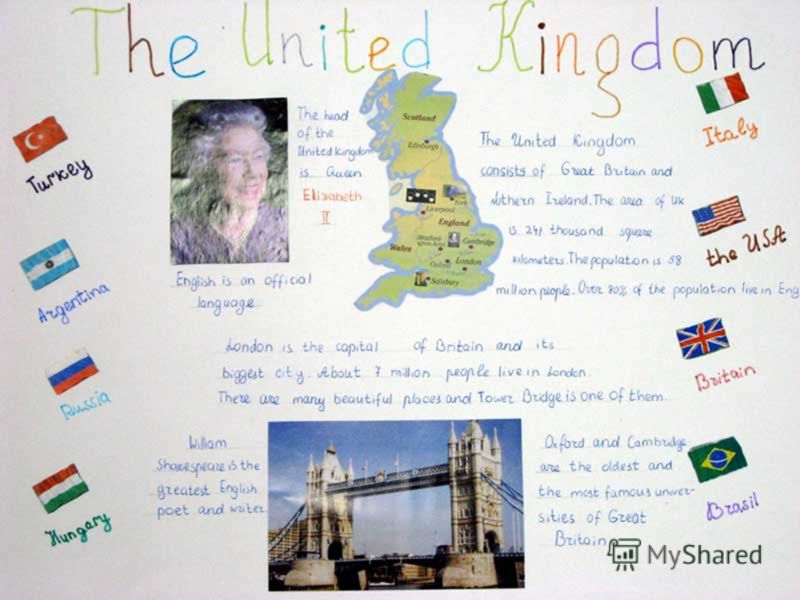 The United Kingdom
Turkey
Argentina
Russia
Hungary
The head
of the
United Kingdom
is Queen
Elizabeth
II
English is an official
language
Scotland
Edinburgh
York
Liverpool
England
Wales
Cambridge
Oxford
London
Salisbury
The United Kingdom
consists of Great Britain and
Nothern Ireland. The area of UK
is 241 thousand square
kilometers. The population is 58
million people. Over 80% of the population live in Eng
London is the capital of Britain and its
biggest city. About 7 million people live in London.
There are many beautiful places and Tower Bridge is one of them.
William
Shakespeare is the
greatest English
poet and writer.
Oxford and Cambridge
are the oldest and
the most famous univer-
sities of Great
Britain
Italy
the USA
Britain
Brasil
MyShared